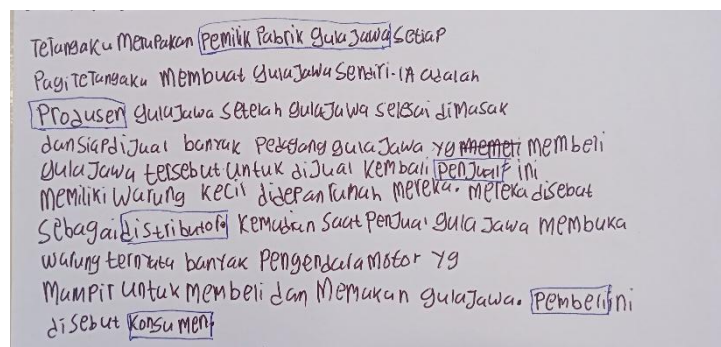 Tetangaku merupakan pemilik pabrik gula Jawa setiap
Pagi Tetangaku membuat gula Jawa sendiri. IA adalah
Produsen gula Jawa setelah gula Jawa selesai dimasak
dan siap dijual banyak pedagang gula Jawa yg memeti membeli
gula Jawa tersebut untuk dijual kembali penjual ini
memiliki warung kecil didepan rumah mereka. mereka disebut
sebagai distributor kemudian saat penjual gula Jawa membuka
warung ternyata banyak pengendara motor yg
mampir untuk membeli dan memakan gula Jawa. pembeli ini
disebut konsumen